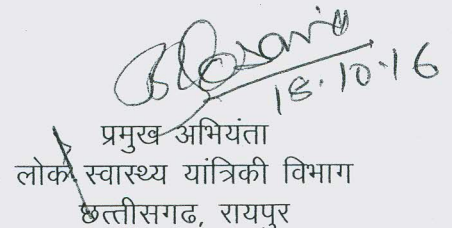 18.10.16
प्रमुख अभियंता
लोक स्वास्थ्य यांत्रिकी विभाग
छत्तीसगढ, रायपुर